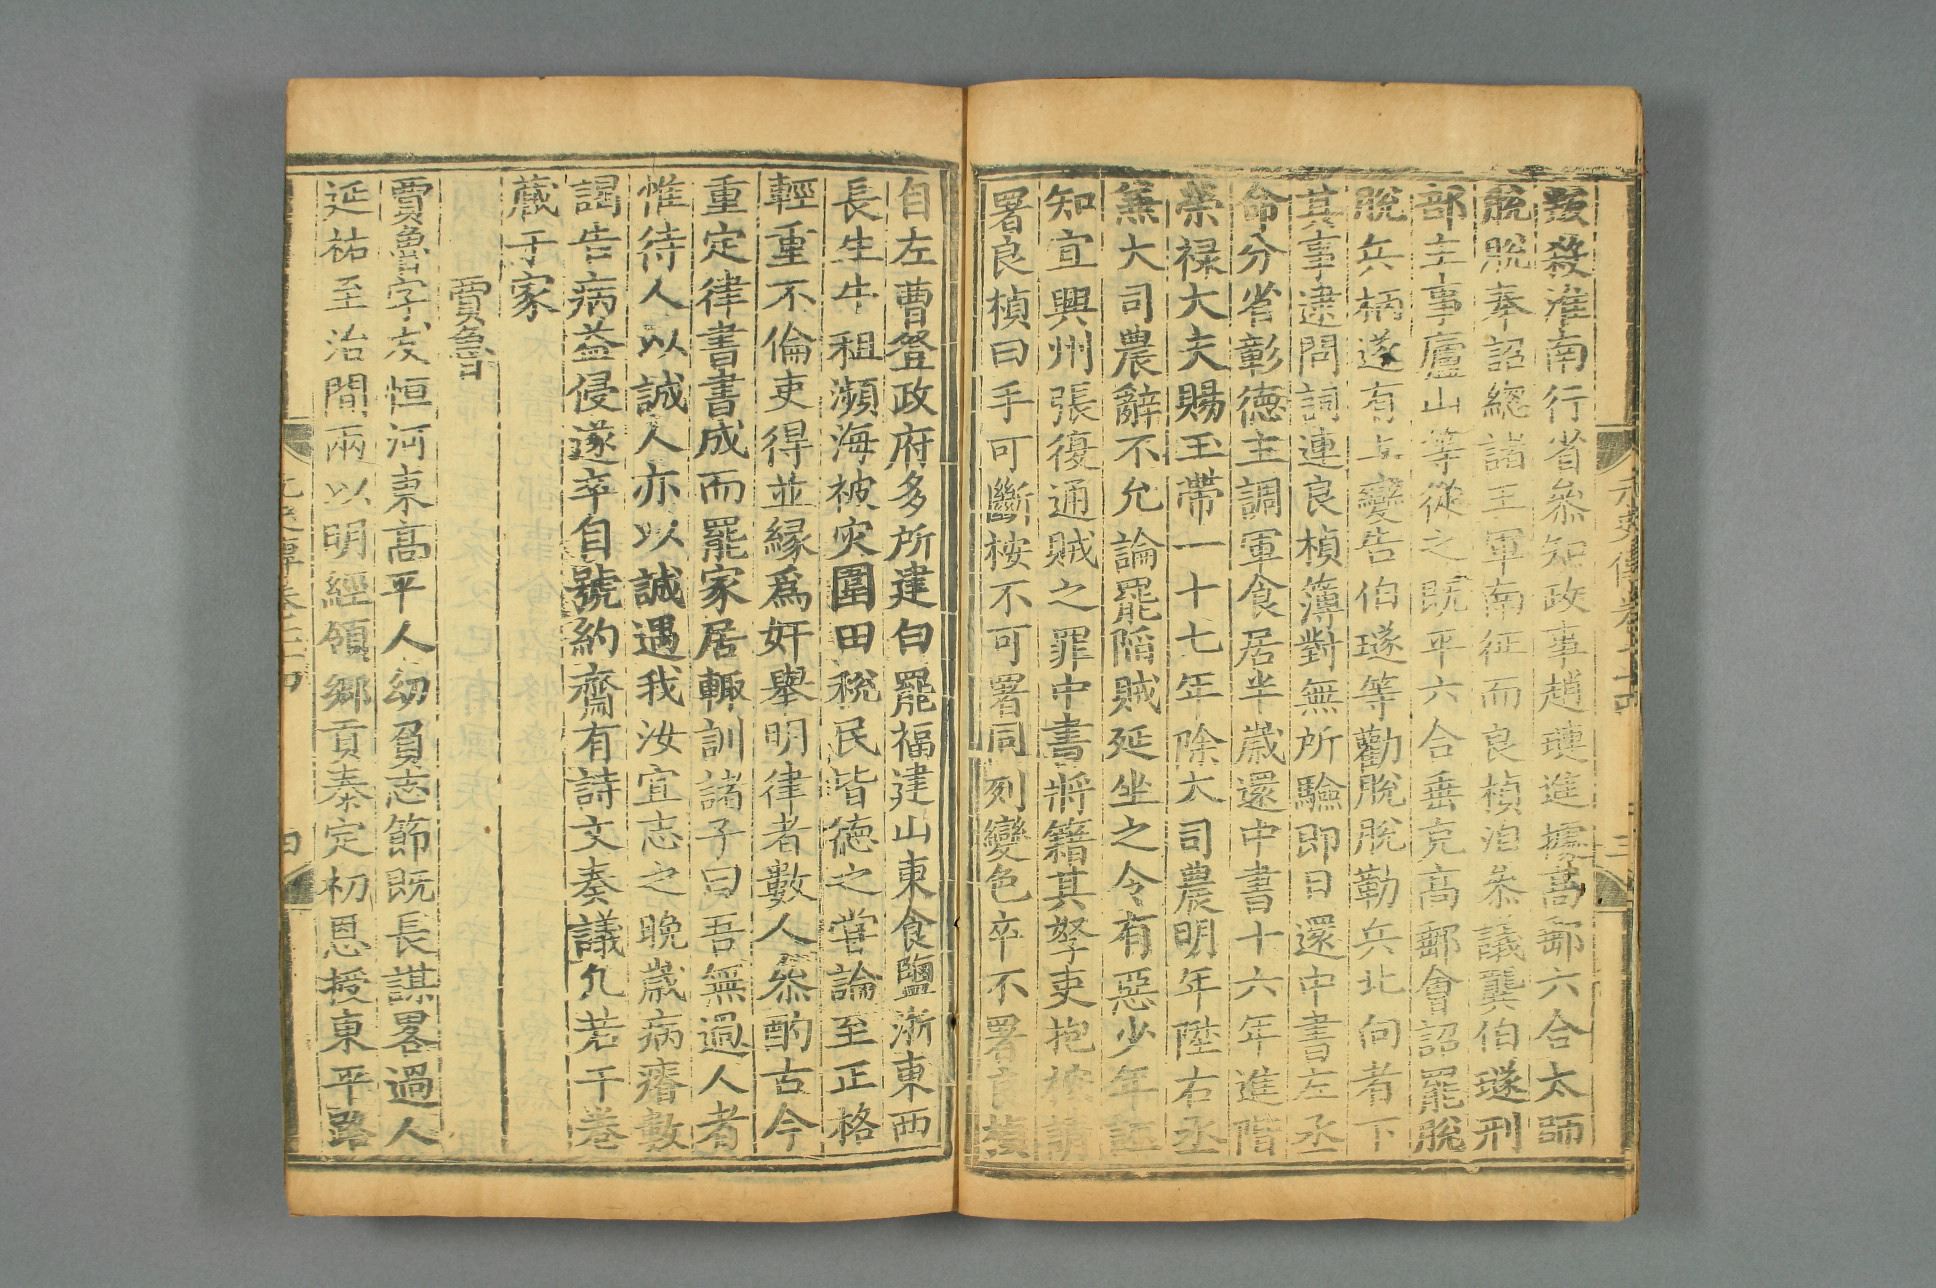 叛殺淮南行省叅知政事趙璉進據高郵六合太師
脫脫奉詔總諸王軍南征而良楨洎叅議龔伯璲刑
部主事廬山等從之既平六合垂克高郵會詔罷脫
脫兵柄遂有上變告伯璲等勸脫脫勒兵北向者下
其事逮問詞連良楨簿對無所驗即日還中書左丞
命分省彰德主調軍食居半歲還中書十六年進階
榮禄大夫賜玉帶一十七年除大司農明年陞右丞
兼大司農辭不允論罷陷賊延坐之令有惡少年誣
知宜興州張復通賊之罪中書將籍其孥吏抱按請
署良楨曰手可斷桉不可署同列變色卒不署良楨
自左曹登政府多所建白罷福建山東食鹽浙東西
長生牛租瀕海被灾圍田稅民皆德之嘗論至正格
輕重不倫吏得並緣爲奸舉明律者數人叅酌古今
重定律書書成而罷家居輒訓諸子曰吾無過人者
惟待人以誠人亦以誠遇我汝宜志之晚歲病瘠數
謁告病益侵遂卒自號約齋有詩文奏議凡若干卷
藏于家
賈魯
賈魯字友恒河東高平人幼負志節既長謀畧過人
延祐至治間兩以明經領鄉貢泰定初恩授東平路